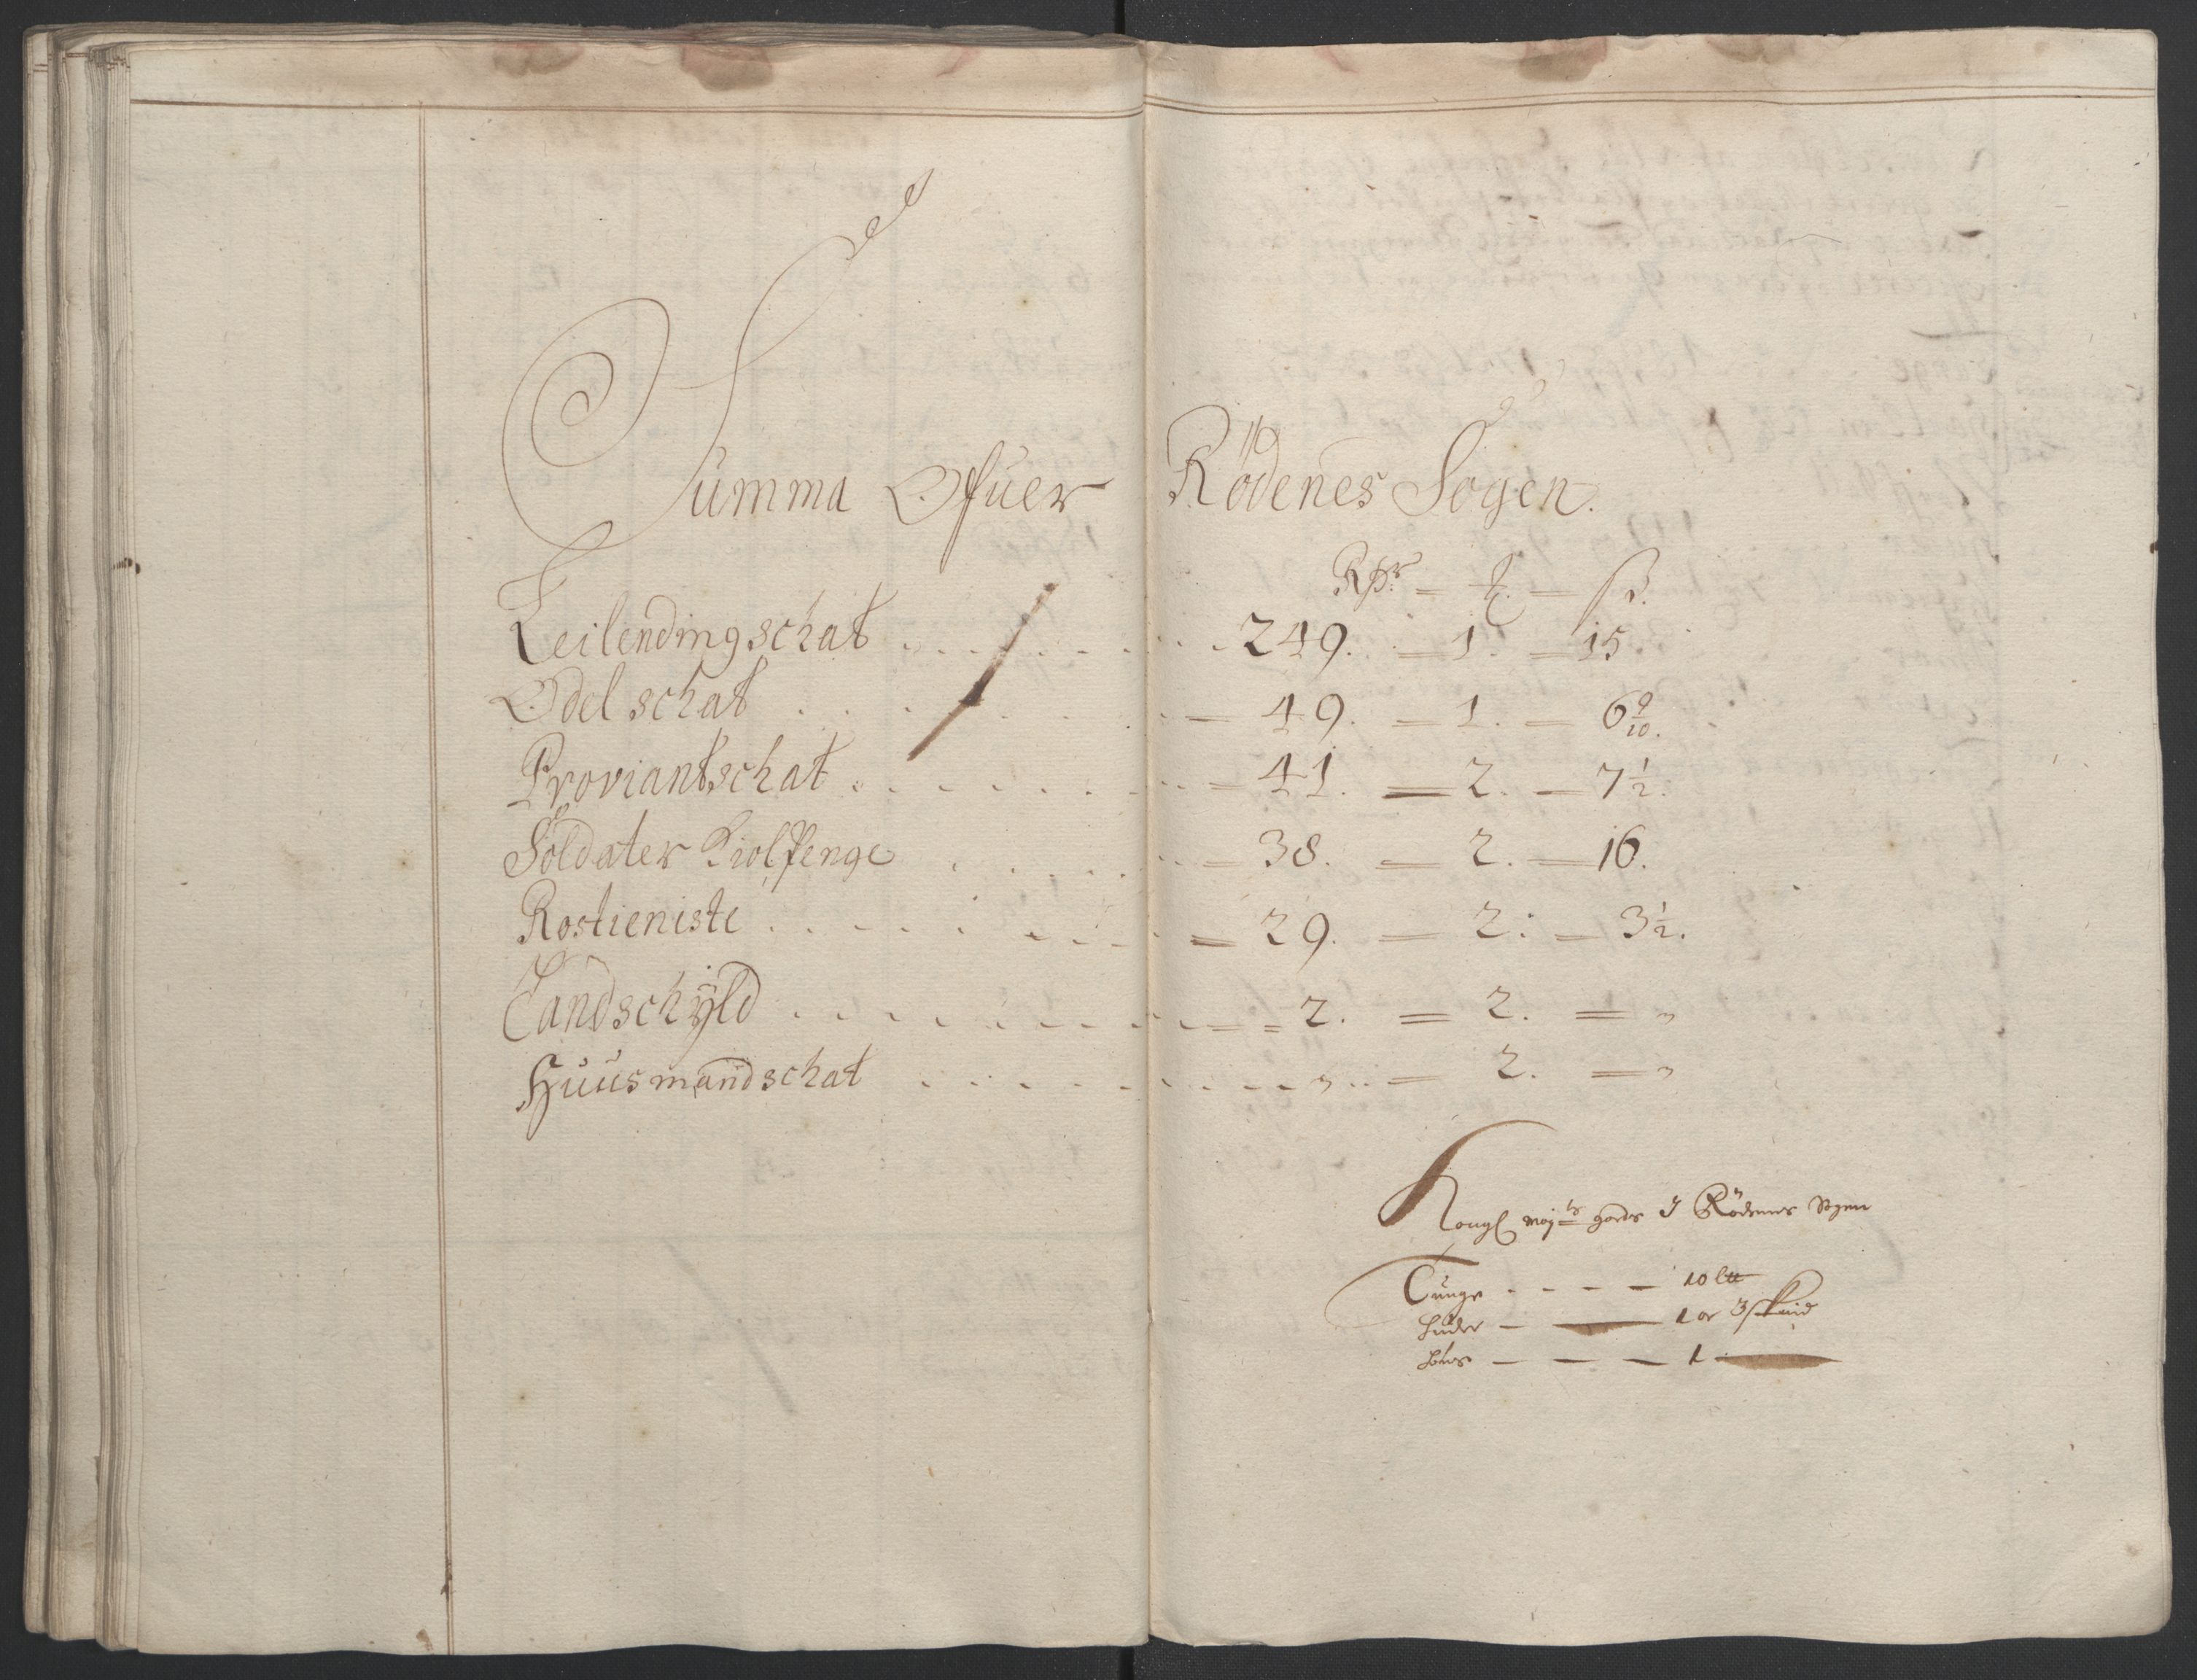 Summa Ofuer Rödenes Sogen.
Rdr = ₰. = ß.
Leilendingschat . . . . . . . . 249. = 1. = 15.
Odel schat . . . . . . . = 49. = 1. = 6 9/10.
Proviantschat . . . . . . . = 41. = 2. = 7 1/2.
Soldater Kiolpenge . . . . . . . = 38. = 2. = 16.
Rostieniste . . . . . . . . = 29. = 2: = 3 1/2.
Landschÿld . . . . . . . . . . = 2. = 2. = "
Huusmandschat . . . . . . . . . " .. = 2. = "
Kongl maÿts gods I Rödenes Sogen
Tunge - - - - 10 ltt
huder - — 1 or 3 skind
bous - - - 1 —